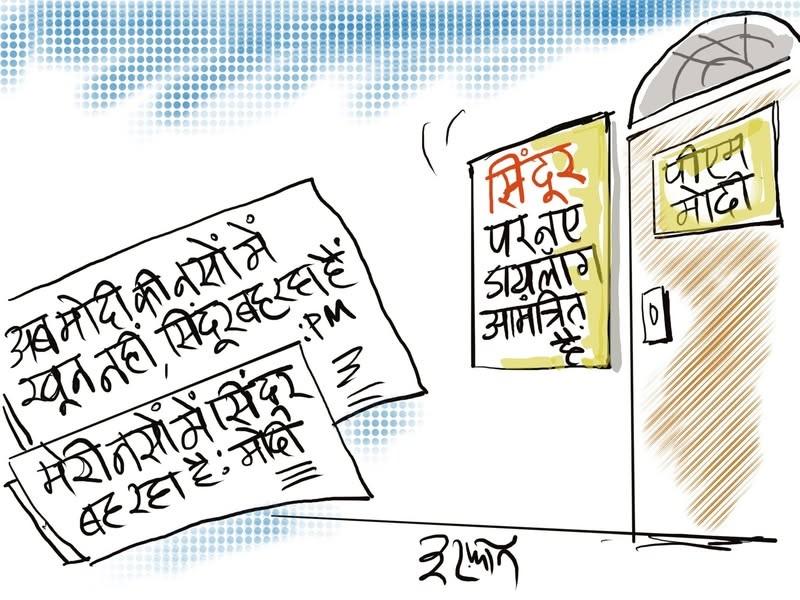 अब मोदी की नसों में
खून नहीं, सिंदूर बह रहा है
:PM
मेरी नसों में सिंदूर
बह रहा है: मोदी
सिंदूर
पर नए
डायलॉग
आमंत्रित
है
पीएम
मोदी
इरफान